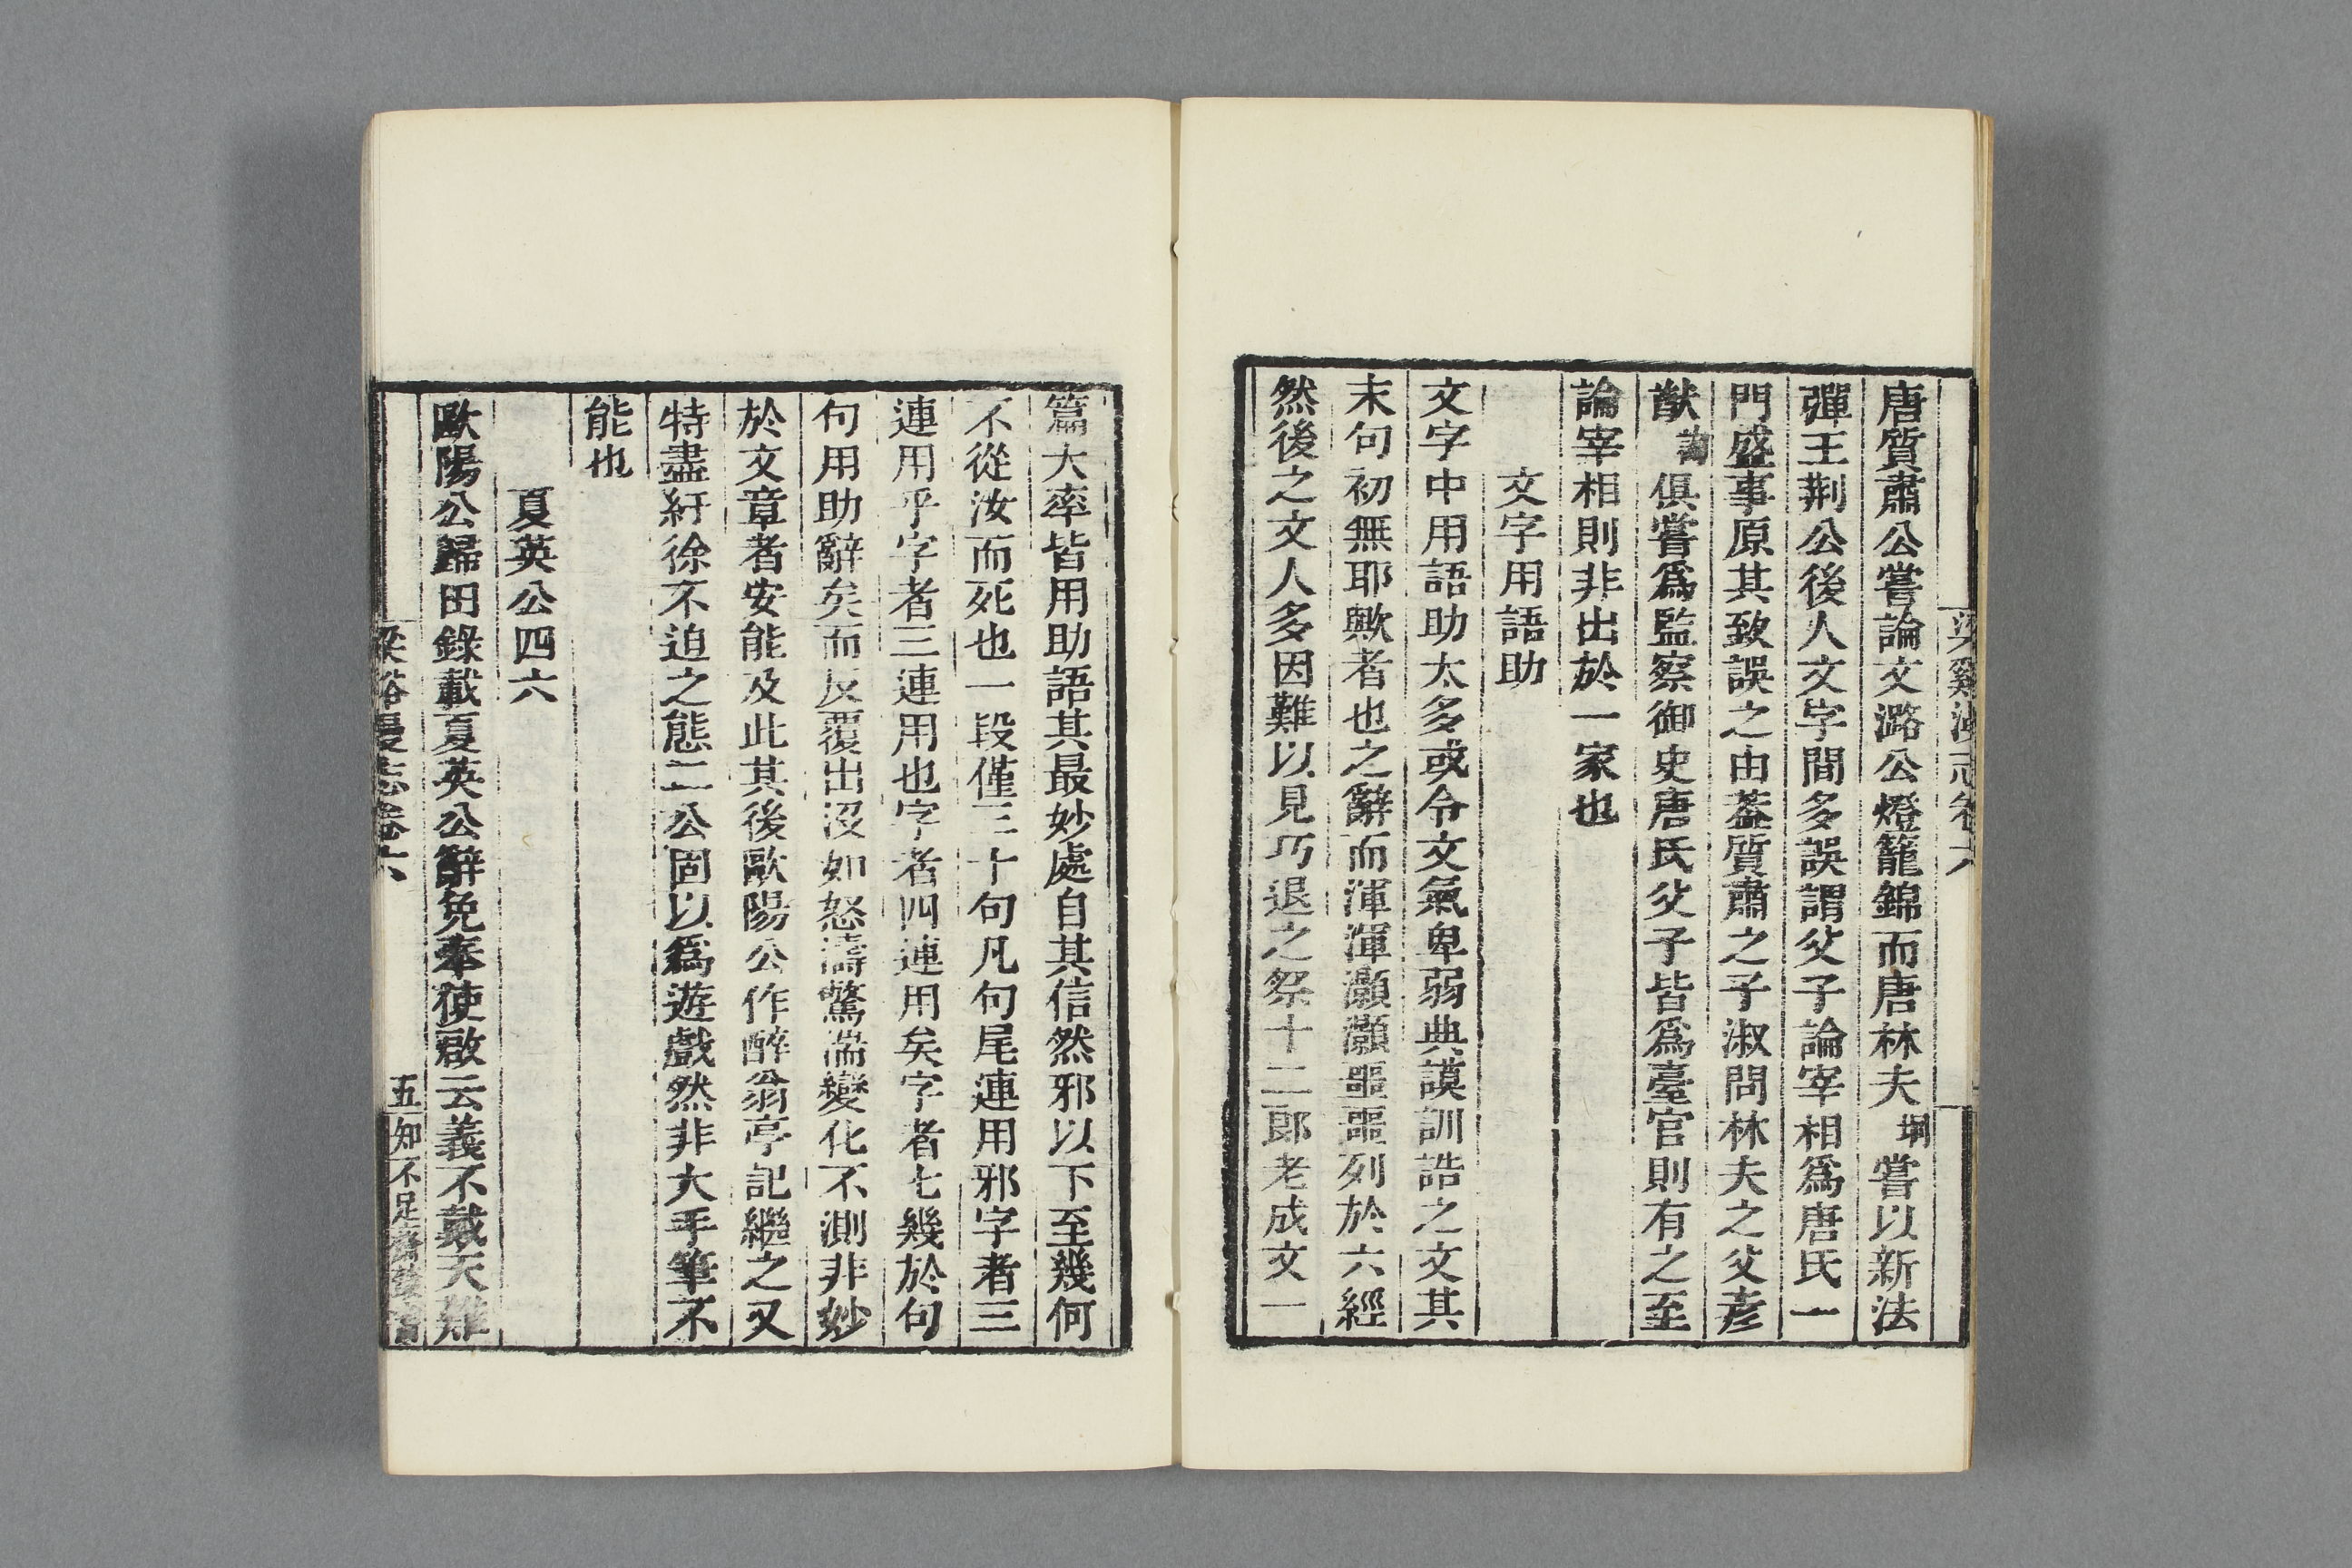 唐質肅公嘗論文潞公燈籠錦而唐林夫坰嘗以新法
彈王荆公後人文字間多誤謂父子論宰相爲唐氏一
門盛事原其致誤之由蓋質肅之子淑問林夫之父彥
猷詢俱嘗爲監察御史唐氏父子皆爲臺官則有之至
論宰相則非出於一家也
文字用語助
文字中用語助太多或令文氣卑弱典謨訓誥之文其
末句初無耶歟者也之辭而渾渾灝灝噩噩列於六經
然後之文人多因難以見巧退之祭十二郎老成文一
篇大率皆用助語其最妙處自其信然邪以下至幾何
不從汝而死也一段僅三十句凡句尾連用邪字者三
連用乎字者三連用也字者四連用矣字者七幾於句
句用助辭矣而反覆出沒如怒濤驚湍變化不測非妙
於文章者安能及此其後歐陽公作醉翁亭記繼之又
特盡紆徐不迫之態二公固以爲遊戲然非大手筆不
能也
夏英公四六
歐陽公歸田錄載夏英公辭免奉使啟云義不戴天難
梁谿漫志卷六
五
知不足齋叢書